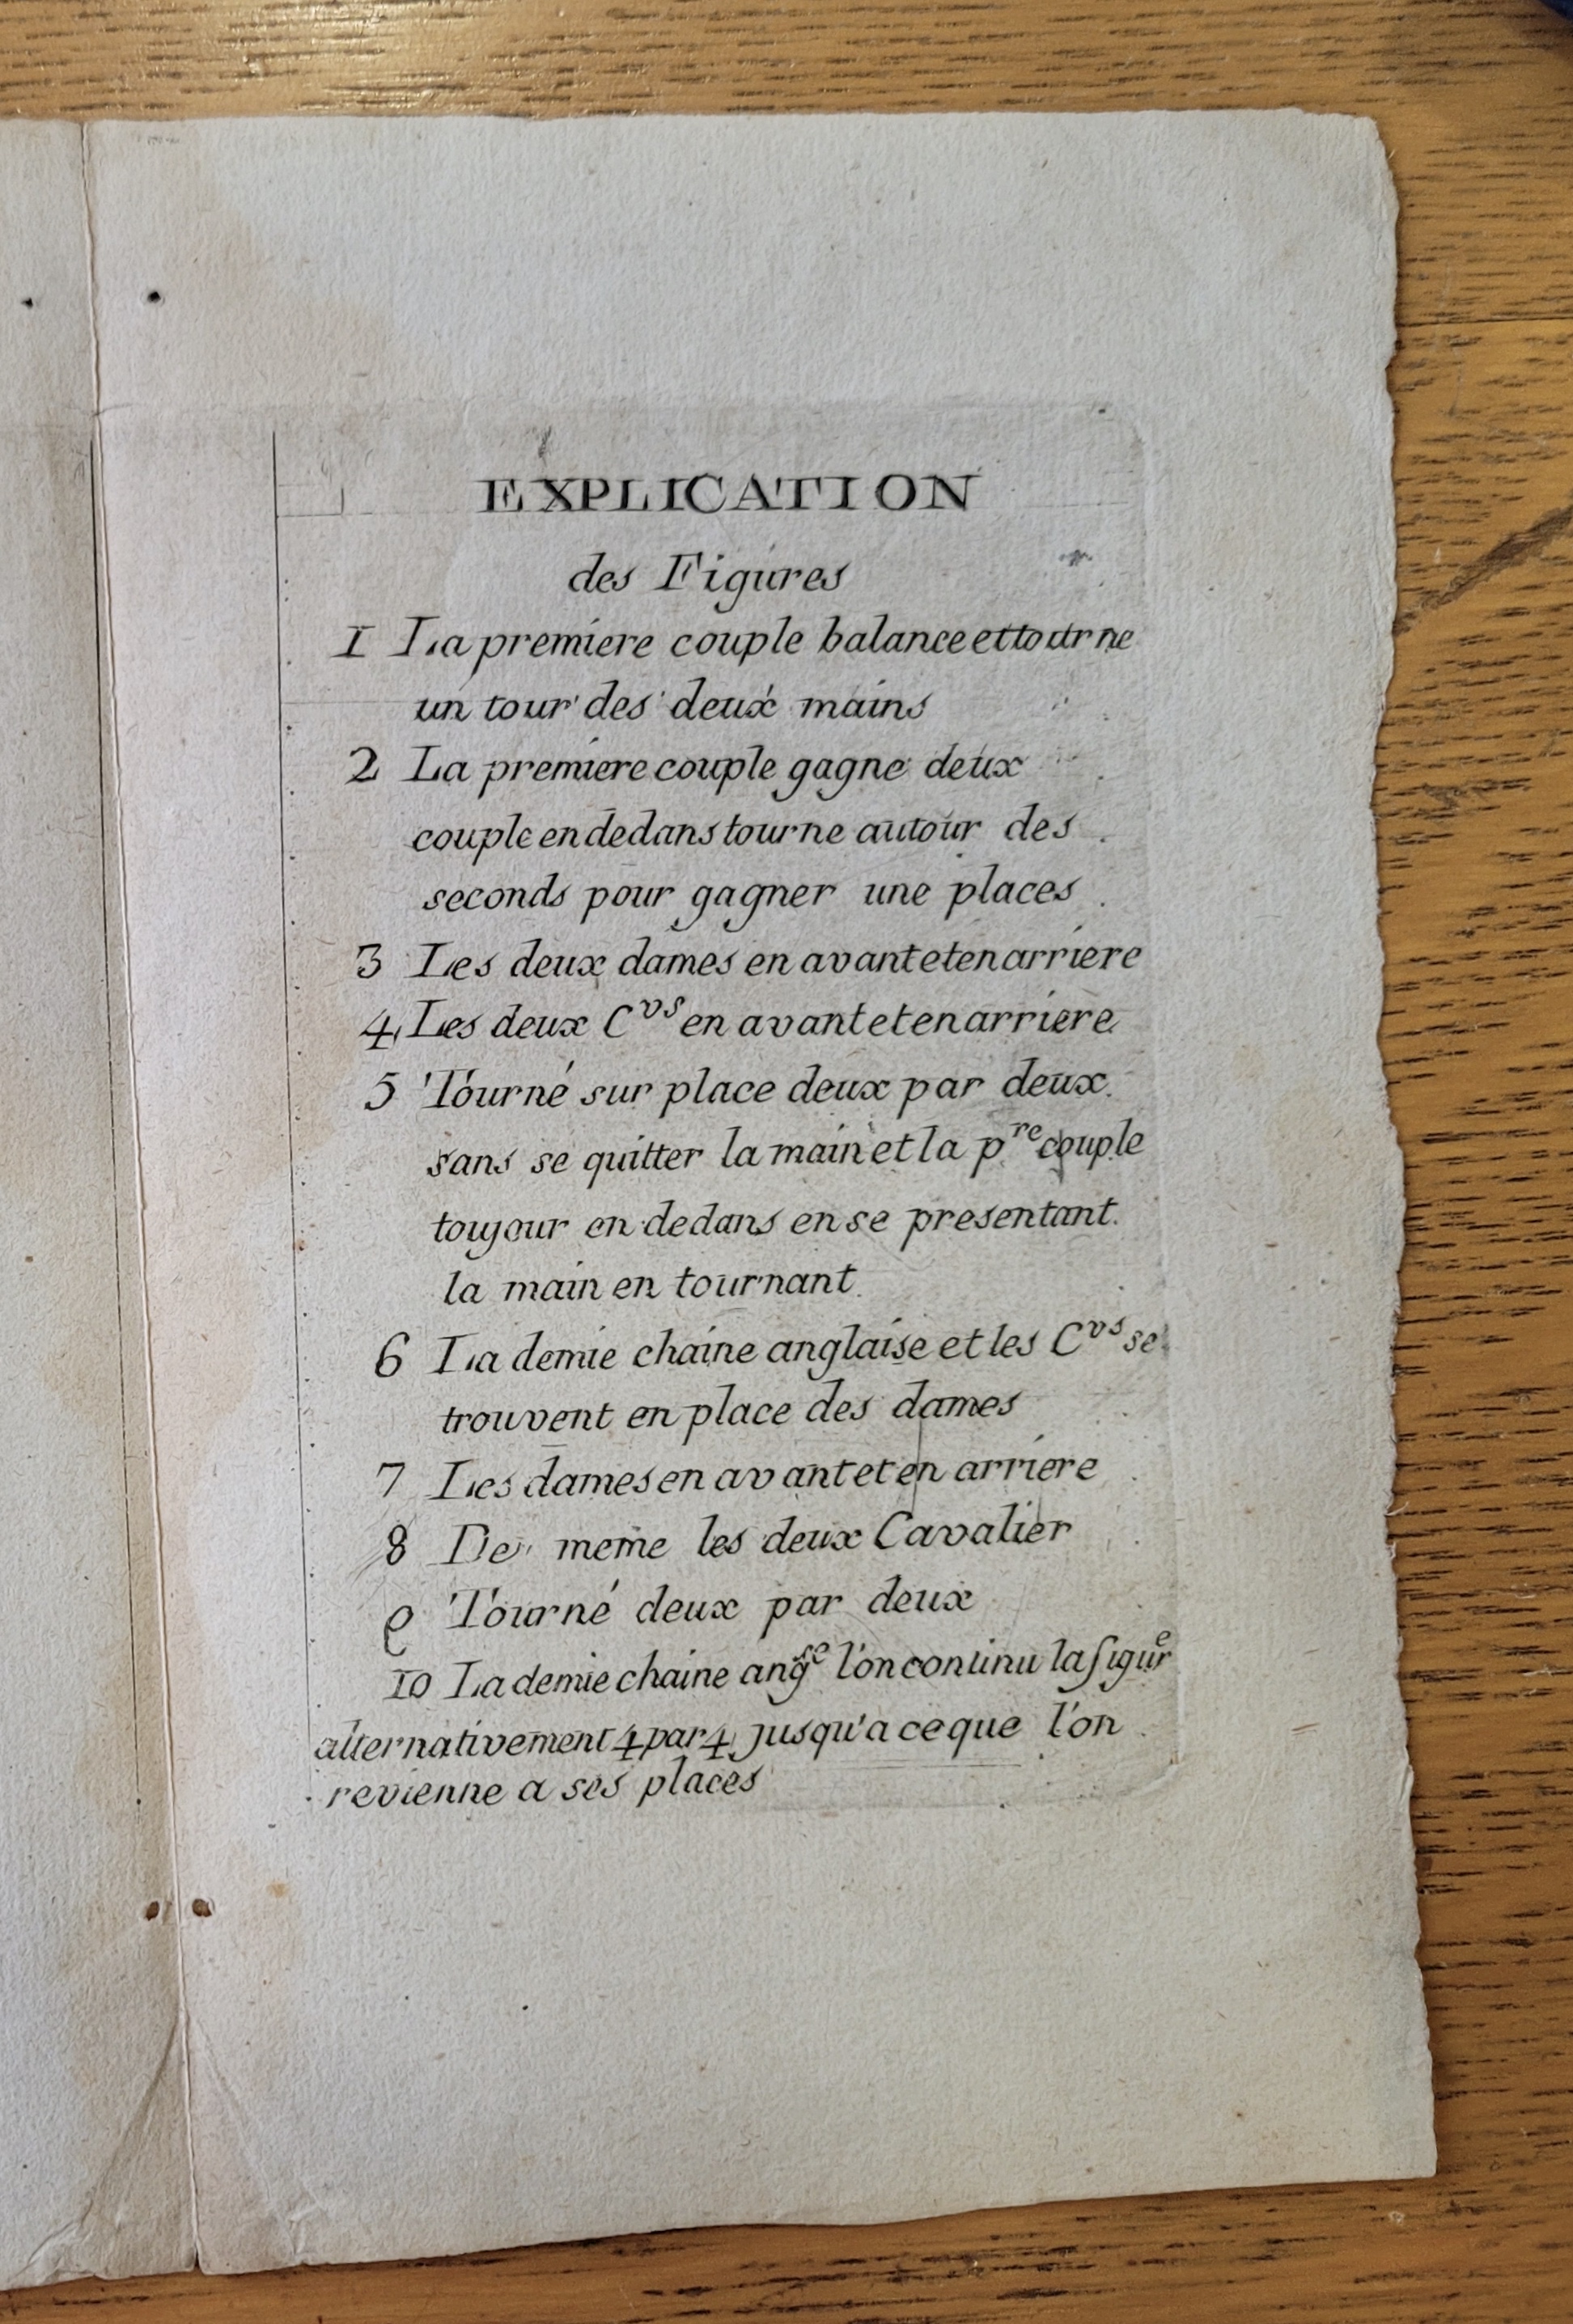 EXPLICATION
des Figures
1 La premiere couple balance et tourne
un tour des deux mains
2 La premiere couple gagne deux
couple en dedans tourne autour des
seconds pour gagner une places
3 Les deux dames en avant et en arriere
4 Les deux Cvs en avant et en arriere
5 Tourné sur place deux par deux
sans se quitter la main et la pre couple
toujour en dedans en se presentant
la main en tournant
6 La demie chaine anglaise et les Cvs se
trouvent en place des dames
7 Les dames en avant et en arriere
8 De meme les deux Cavalier
9 Tourné deux par deux
10 La demie chaine angse l'on continu la figure
alternativement 4 par 4 jusqu'a ce que l'on
revienne a ses places